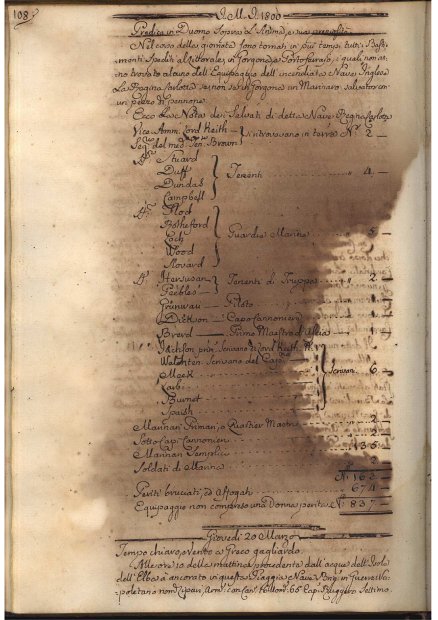 108.
I. M. I. 1800
Predica in Duomo sopra L'Anima, e sua
Nel corso della giornata sono tornati in più tempi tutti i Basti-
menti Spediti al littorale, in Gorgona, a Portoferrajo, i quali non an-
no trovato alcuno dell'Equipaggio dell'incendiata Nave Inglese
La Regina Carlotta se non se in Gorgona un Marinaro salvatosi con
un pezzo di pennone.
Ecco La Nota dei Salvati di detta Nave Regna Carlota
Vice Amm. Lord Keith
Seg. del med. Ten. Brown } si ritrovavano in terra N. 2 —
Stuard
Duff
Dundas
Campbell } Tenenti 4 —
Flod
Botheford
Coch
Wood
Hovard } Guardie Marine 5 —
Peebles } Tenenti di Truppa 2 —
— Piloto
Dickson — Capo Cannoniere
Breed — Primo Maestro d'Ascia
Jackson prim. Scrivano di Lord Keith
Scrivano del Cap.
Meek
Burnet
Spaish } Scrivani 6 —
Marinari Primari, e Quartier Mastri 2
Sotto Capi Cannonieri
Marinari Semplici 135
Soldati di Marina
N. 162 —
Periti bruciati, ed affogati 674 —
Equipaggio non compreso una Donna perita N. 837 —
Giovedì 20 Marzo
Tempo chiaro, Vento a Greco gagliardo.
Alle ore 10 della mattina procedente dall'acque dell'Isola
dell'Elba à ancorato in questa Spiaggia, e Nave in Guerra Na-
poletana 65 Cap. Ruggero Settimo